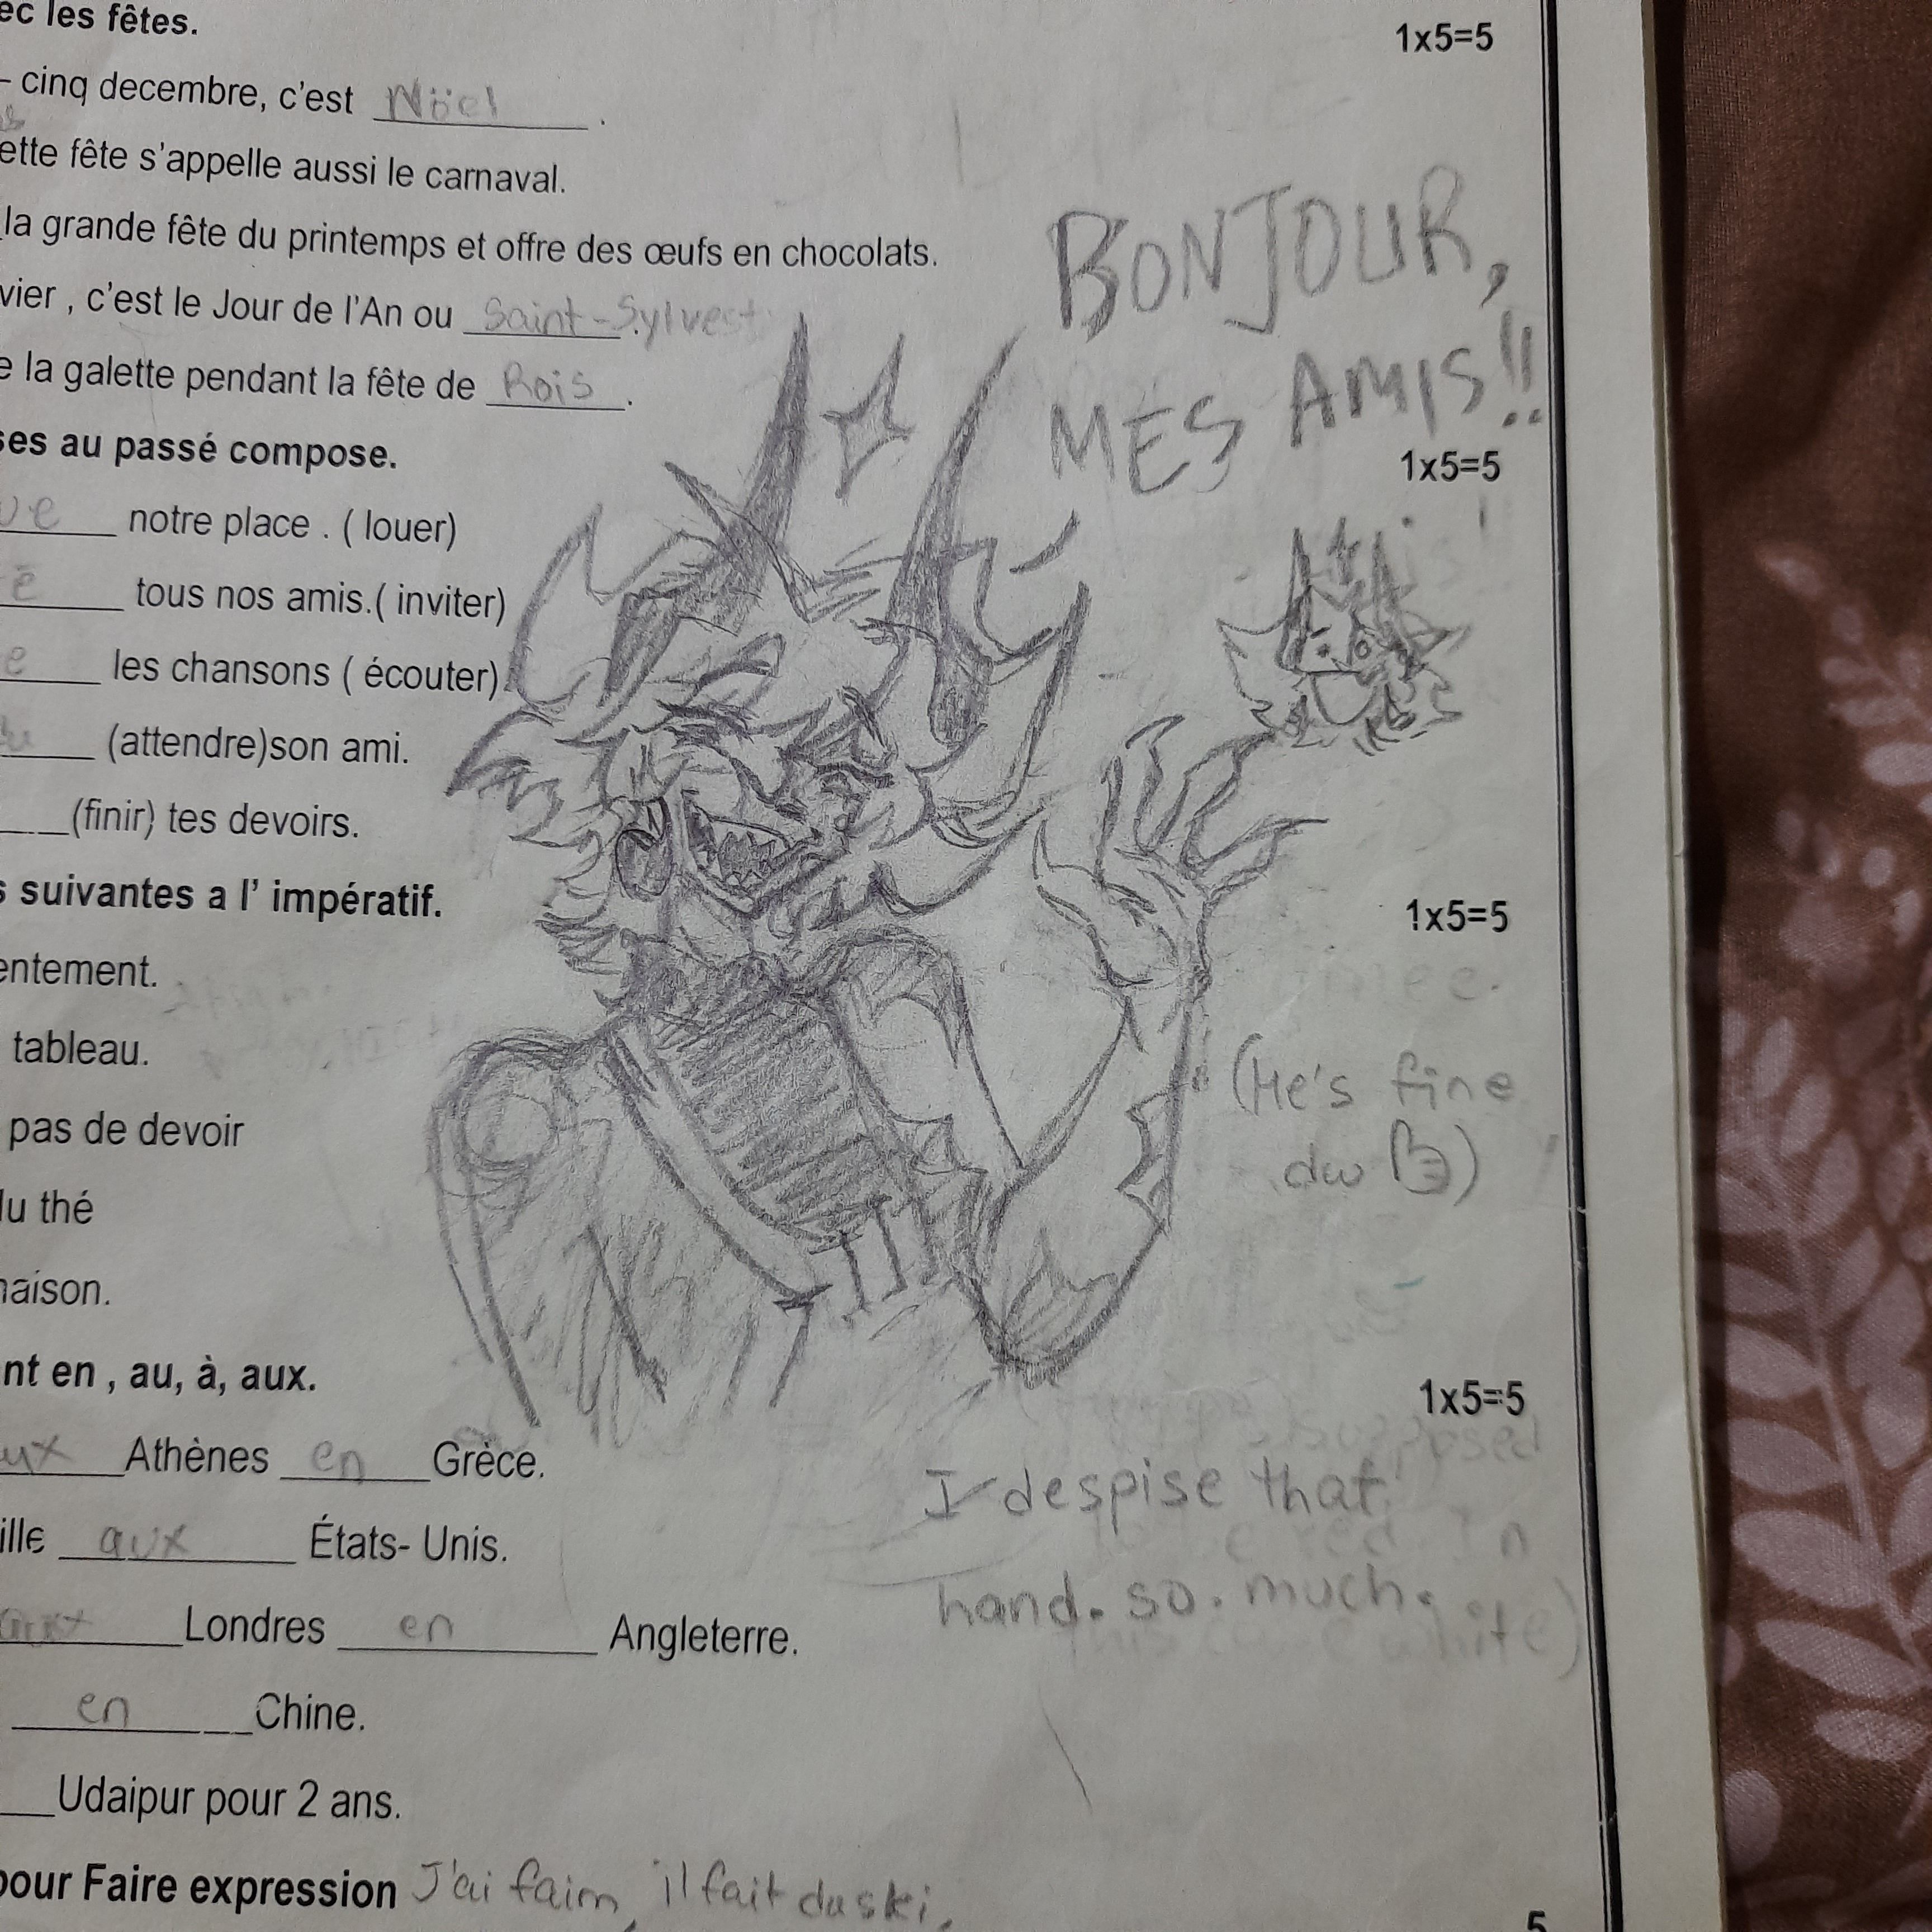 ec les fêtes. 1x5=5
- cinq decembre, c'est Nöel.
ette fête s'appelle aussi le carnaval.
la grande fête du printemps et offre des œufs en chocolats.
BONJOUR,
vier , c'est le Jour de l'An ou Saint-Sylvest.
MES AMIS!!
e la galette pendant la fête de Rois.
ses au passé compose. 1x5=5
ve notre place . ( louer)
é tous nos amis.( inviter)
e les chansons ( écouter)
(attendre)son ami.
(finir) tes devoirs.
s suivantes a l' impératif. 1x5=5
entement.
tableau.
(He's fine
pas de devoir
dw)
du thé
maison.
nt en , au, à, aux. 1x5=5
ux Athènes en Grèce.
I despise that
ille aux États- Unis.
hand. so. much.
Londres en Angleterre.
en Chine.
Udaipur pour 2 ans.
pour Faire expression J'ai faim, il fait du ski,
5